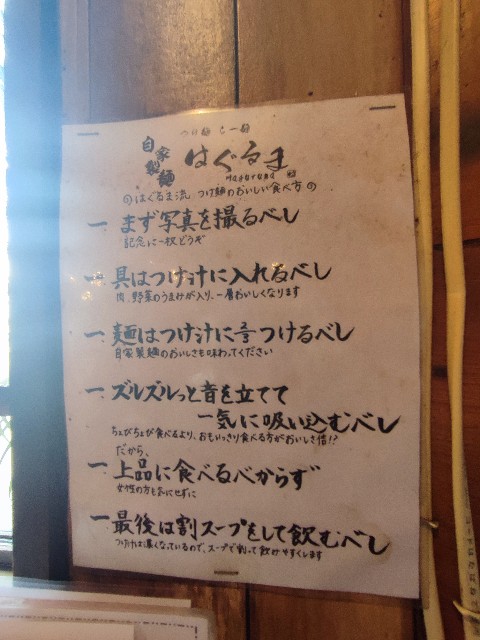 つけ麺 らー麺
自家製麺 はぐるま
Haguruma
のはぐるま流 つけ麺のおいしい食べ方の
一、まず写真を撮るべし
記念に一枚どうぞ
一、具はつけ汁に入れるべし
肉、野菜のうまみが入り、一層おいしくなります
一、麺はつけ汁に三つけるべし
自家製麺のおいしさも味わってください
一、ズルズルっと音を立てて
一気に吸い込むべし
ちょびちょび食べるより、おもいっきり食べる方がおいしさ倍!?
だから、
一、上品に食べるべからず
女性の方も気にせずに
一、最後は割スープをして飲むべし
つけ汁は濃くなっているので、スープで割って飲みやすくします